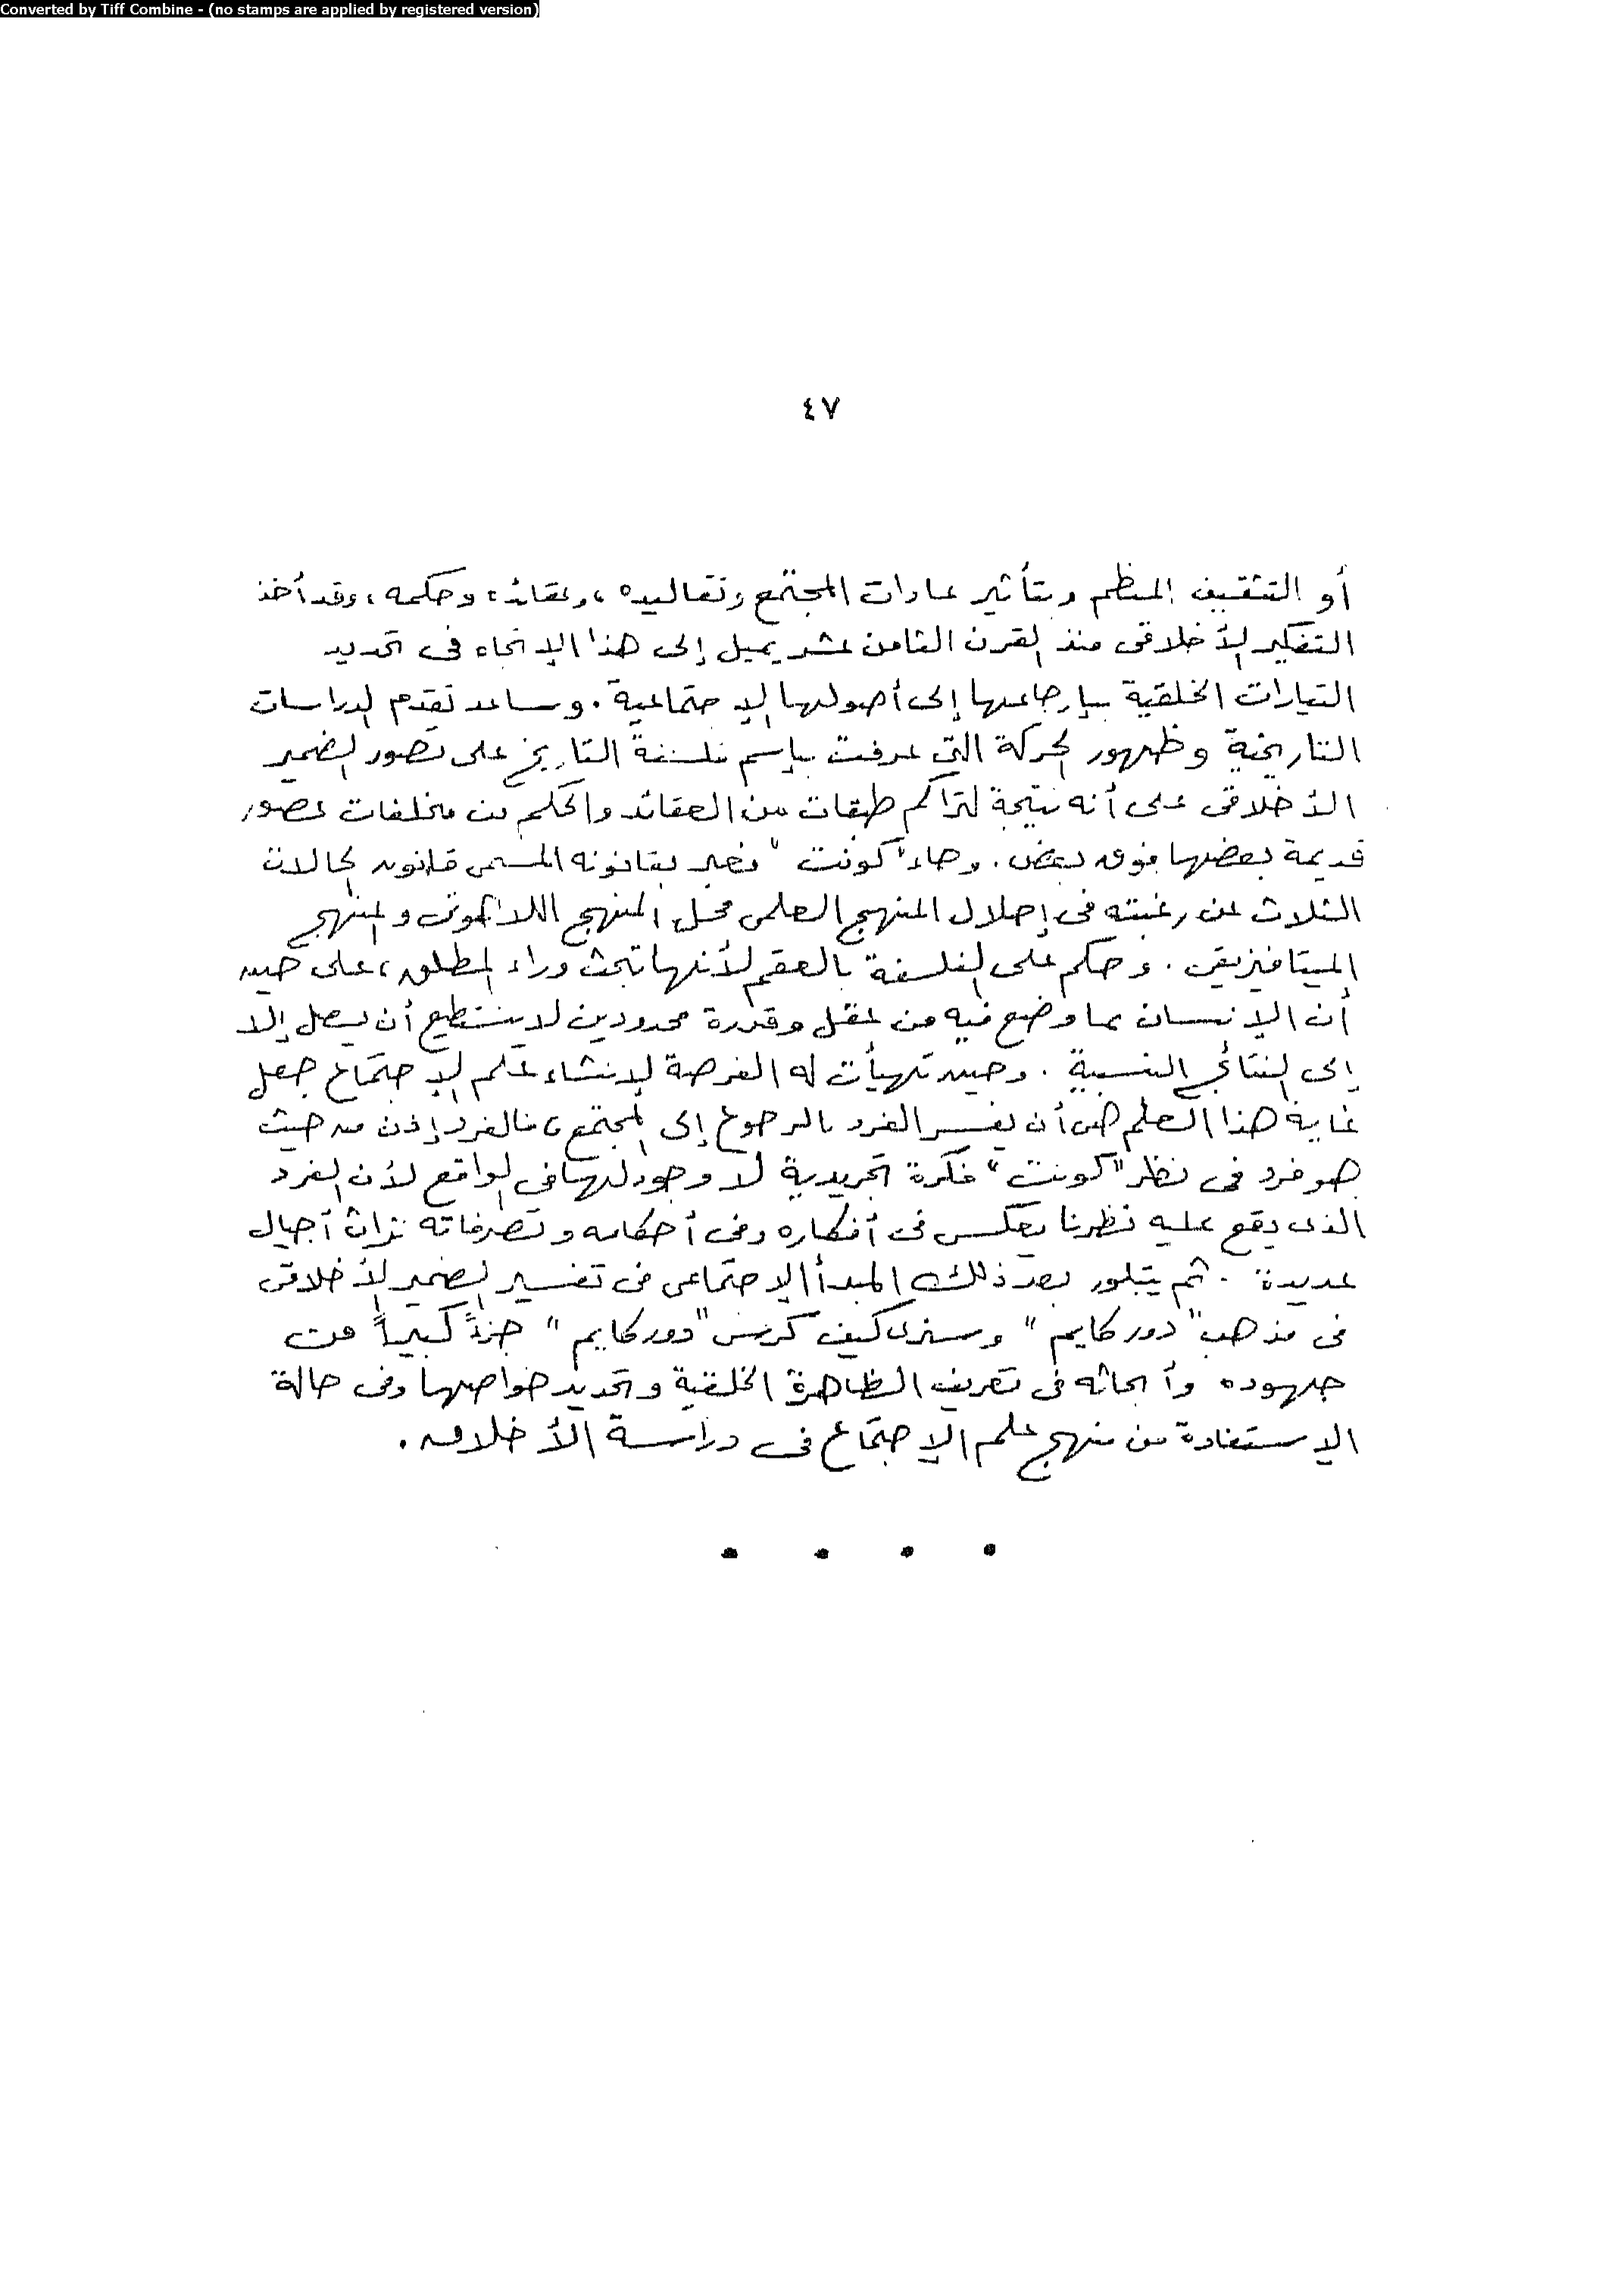 Converted by Tiff Combine - (no stamps are applied by registered version)
٤٧
أو التثقيف المنظم وبتأثير عادات المجتمع وتقاليده، وعقائده وحكمه، وقد أخذ
التفكير الأخلاقى منذ القرن الثامن عشر يميل إلى هذا الإتجاه فى تحديد
التيارات الخلقية بإرجاعها إلى أصولها الإجتماعية. وساعد تقدم الدراسات
التاريخية وظهور الحركة التى عرفت بإسم فلسفة التاريخ على تصور الضمير
الأخلاقى على أنه نتيجة لتراكم طبقات من العقائد والحكم من مخلفات عصور
قديمة بعضها فوق بعض. وجاء "كونت" فعبر بقانونه المسمى قانون الحالات
الثلاث عن رغبته فى إحلال المنهج العلمى محل المنهج اللاهوتى والمنهج
الميتافيزيقى. وحكم على الفلسفة بالعقم لأنها تبحث وراء المطلق، على حين
أن الإنسان بما وضع فيه من عقل وقدرة محدودين لا يستطيع أن يصل إلا
إلى النتائج النسبية. وحين تهيأت له الفرصة لإنشاء علم الإجتماع جعل
غاية هذا العلم هى أن يفسر الفرد بالرجوع إلى المجتمع، فالفرد إذن من حيث
هو فرد فى نظر "كونت" فكرة تجريدية لا وجود لها فى الواقع لأن الفرد
الذى يقع عليه نظرنا يعكس فى أفكاره وفى أحكامه وتصرفاته تراث أجيال
عديدة. ثم يتبلور بعد ذلك المبدأ الإجتماعى فى تفسير الضمير الأخلاقى
فى مذهب "دوركايم" وسنرى كيف كرس "دوركايم" جزءً كبيراً من
جهوده وأبحاثه فى تعريف الظاهرة الخلقية وتحديد خواصها وفى حالة
الإستفادة من منهج علم الإجتماع فى دراسة الأخلاق.
• • • •